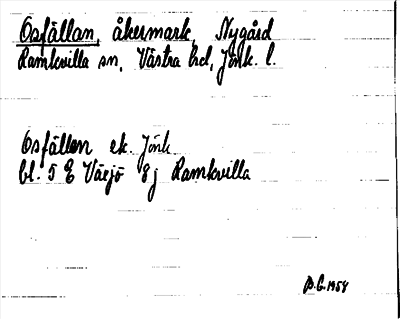 Osfällan, åkermark, Nygård
Ramkvilla sn, Västra hd, Jönk. l.
Osfällan ek. Jönk
bl. 5 E Växjö 8 j Ramkvilla
B.G. 1954